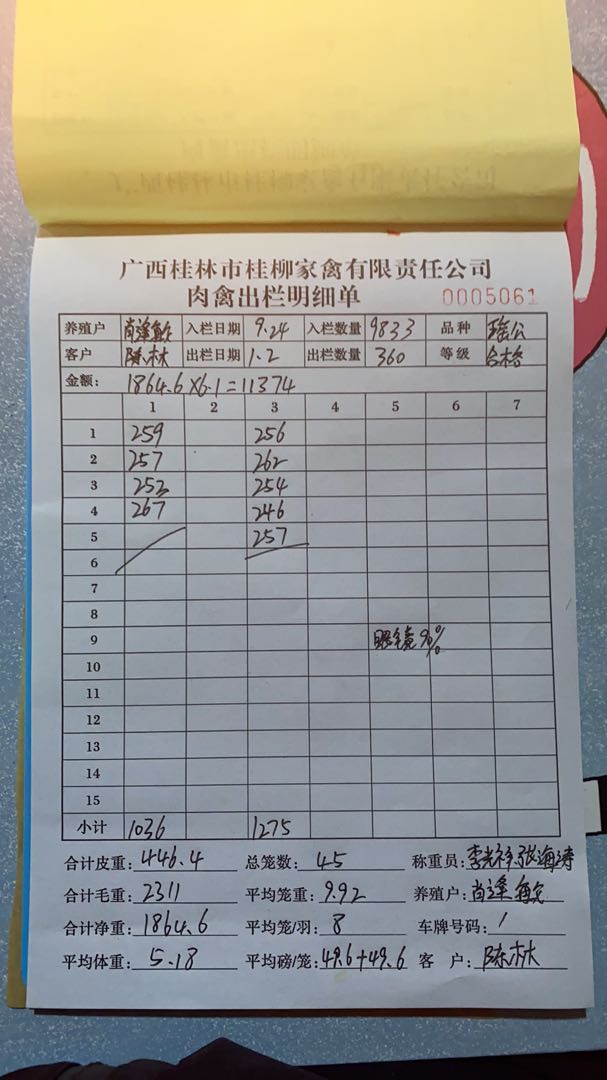 广西桂林市桂柳家禽有限责任公司
肉禽出栏明细单 0005061
养殖户 肖逢 入栏日期 9.24 入栏数量 9833 品种 瑶公
客户 陈林 出栏日期 1.2 出栏数量 360 等级 合格
金额: 1864.6×6.1=11374
1 2 3 4 5 6 7
1 259 256
2 257 262
3 253 254
4 267 246
5 257
6
7
8
9 眼镜90%
10
11
12
13
14
15
小计 1036 1275
合计皮重: 446.4 总笼数: 45 称重员: 李光 张海涛
合计毛重: 2311 平均笼重: 9.92 养殖户: 肖逢
合计净重: 1864.6 平均笼/羽: 8 车牌号码: /
平均体重: 5.18 平均磅/笼: 49.6+49.6 客 户: 陈林